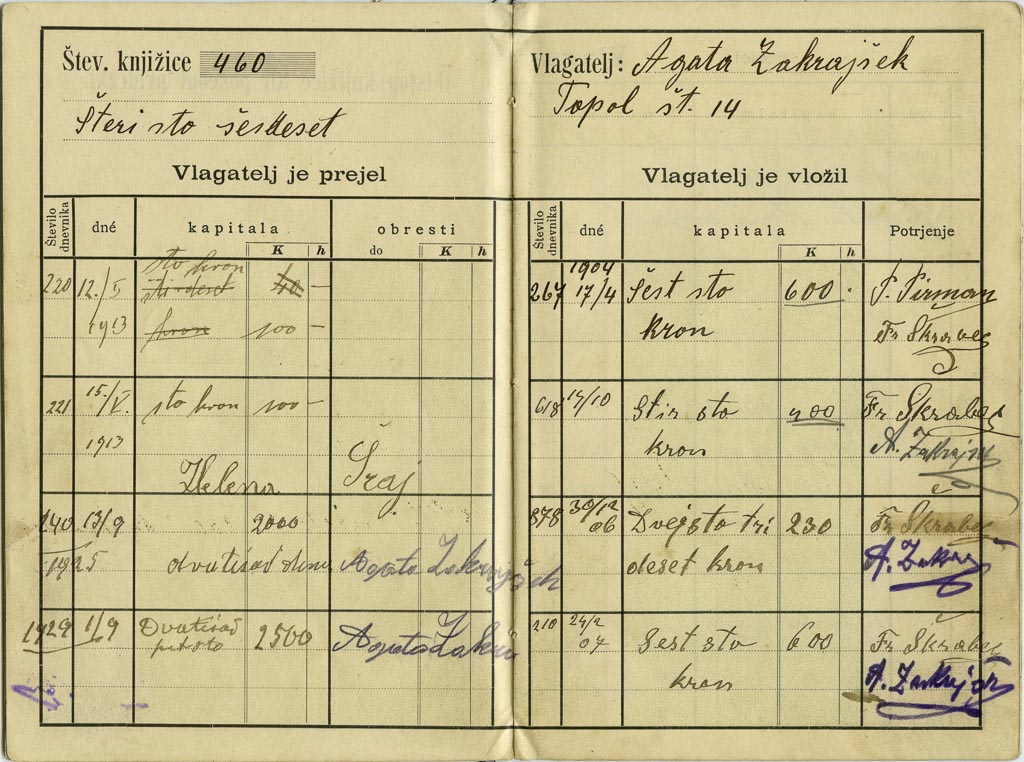 Štev. knjižice 460
Šteri sto šesdeset
Vlagatelj je prejel
Število dnevnika dné kapitala K h obresti do K h
220 12./V sto kron 40 —
1913 kron 100 —
221 15./V. sto kron 100 —
1913
Helena Šraj
140 13/9 2000
1925 dvatisač Agata Zakrajšek
1929 1/9 Dvatisač 2500 Agata
petsto
Vlagatelj: Agata Zakrajšek
Topol št. 14
Vlagatelj je vložil
Število dnevnika dné kapitala K h Potrjenje
1904
267 17/4 Šest sto 600 P. Pirman
kron Fr Škrabec
618 17/10 Štir sto 400 Fr Škrabec
kron A. Zakrajšek
878 30/12 06 Dvejsto tri 230 Fr Škrabec
deset kron
210 24/2 07 Šest sto 600 Fr Škrabec
kron A. Zakrajšek